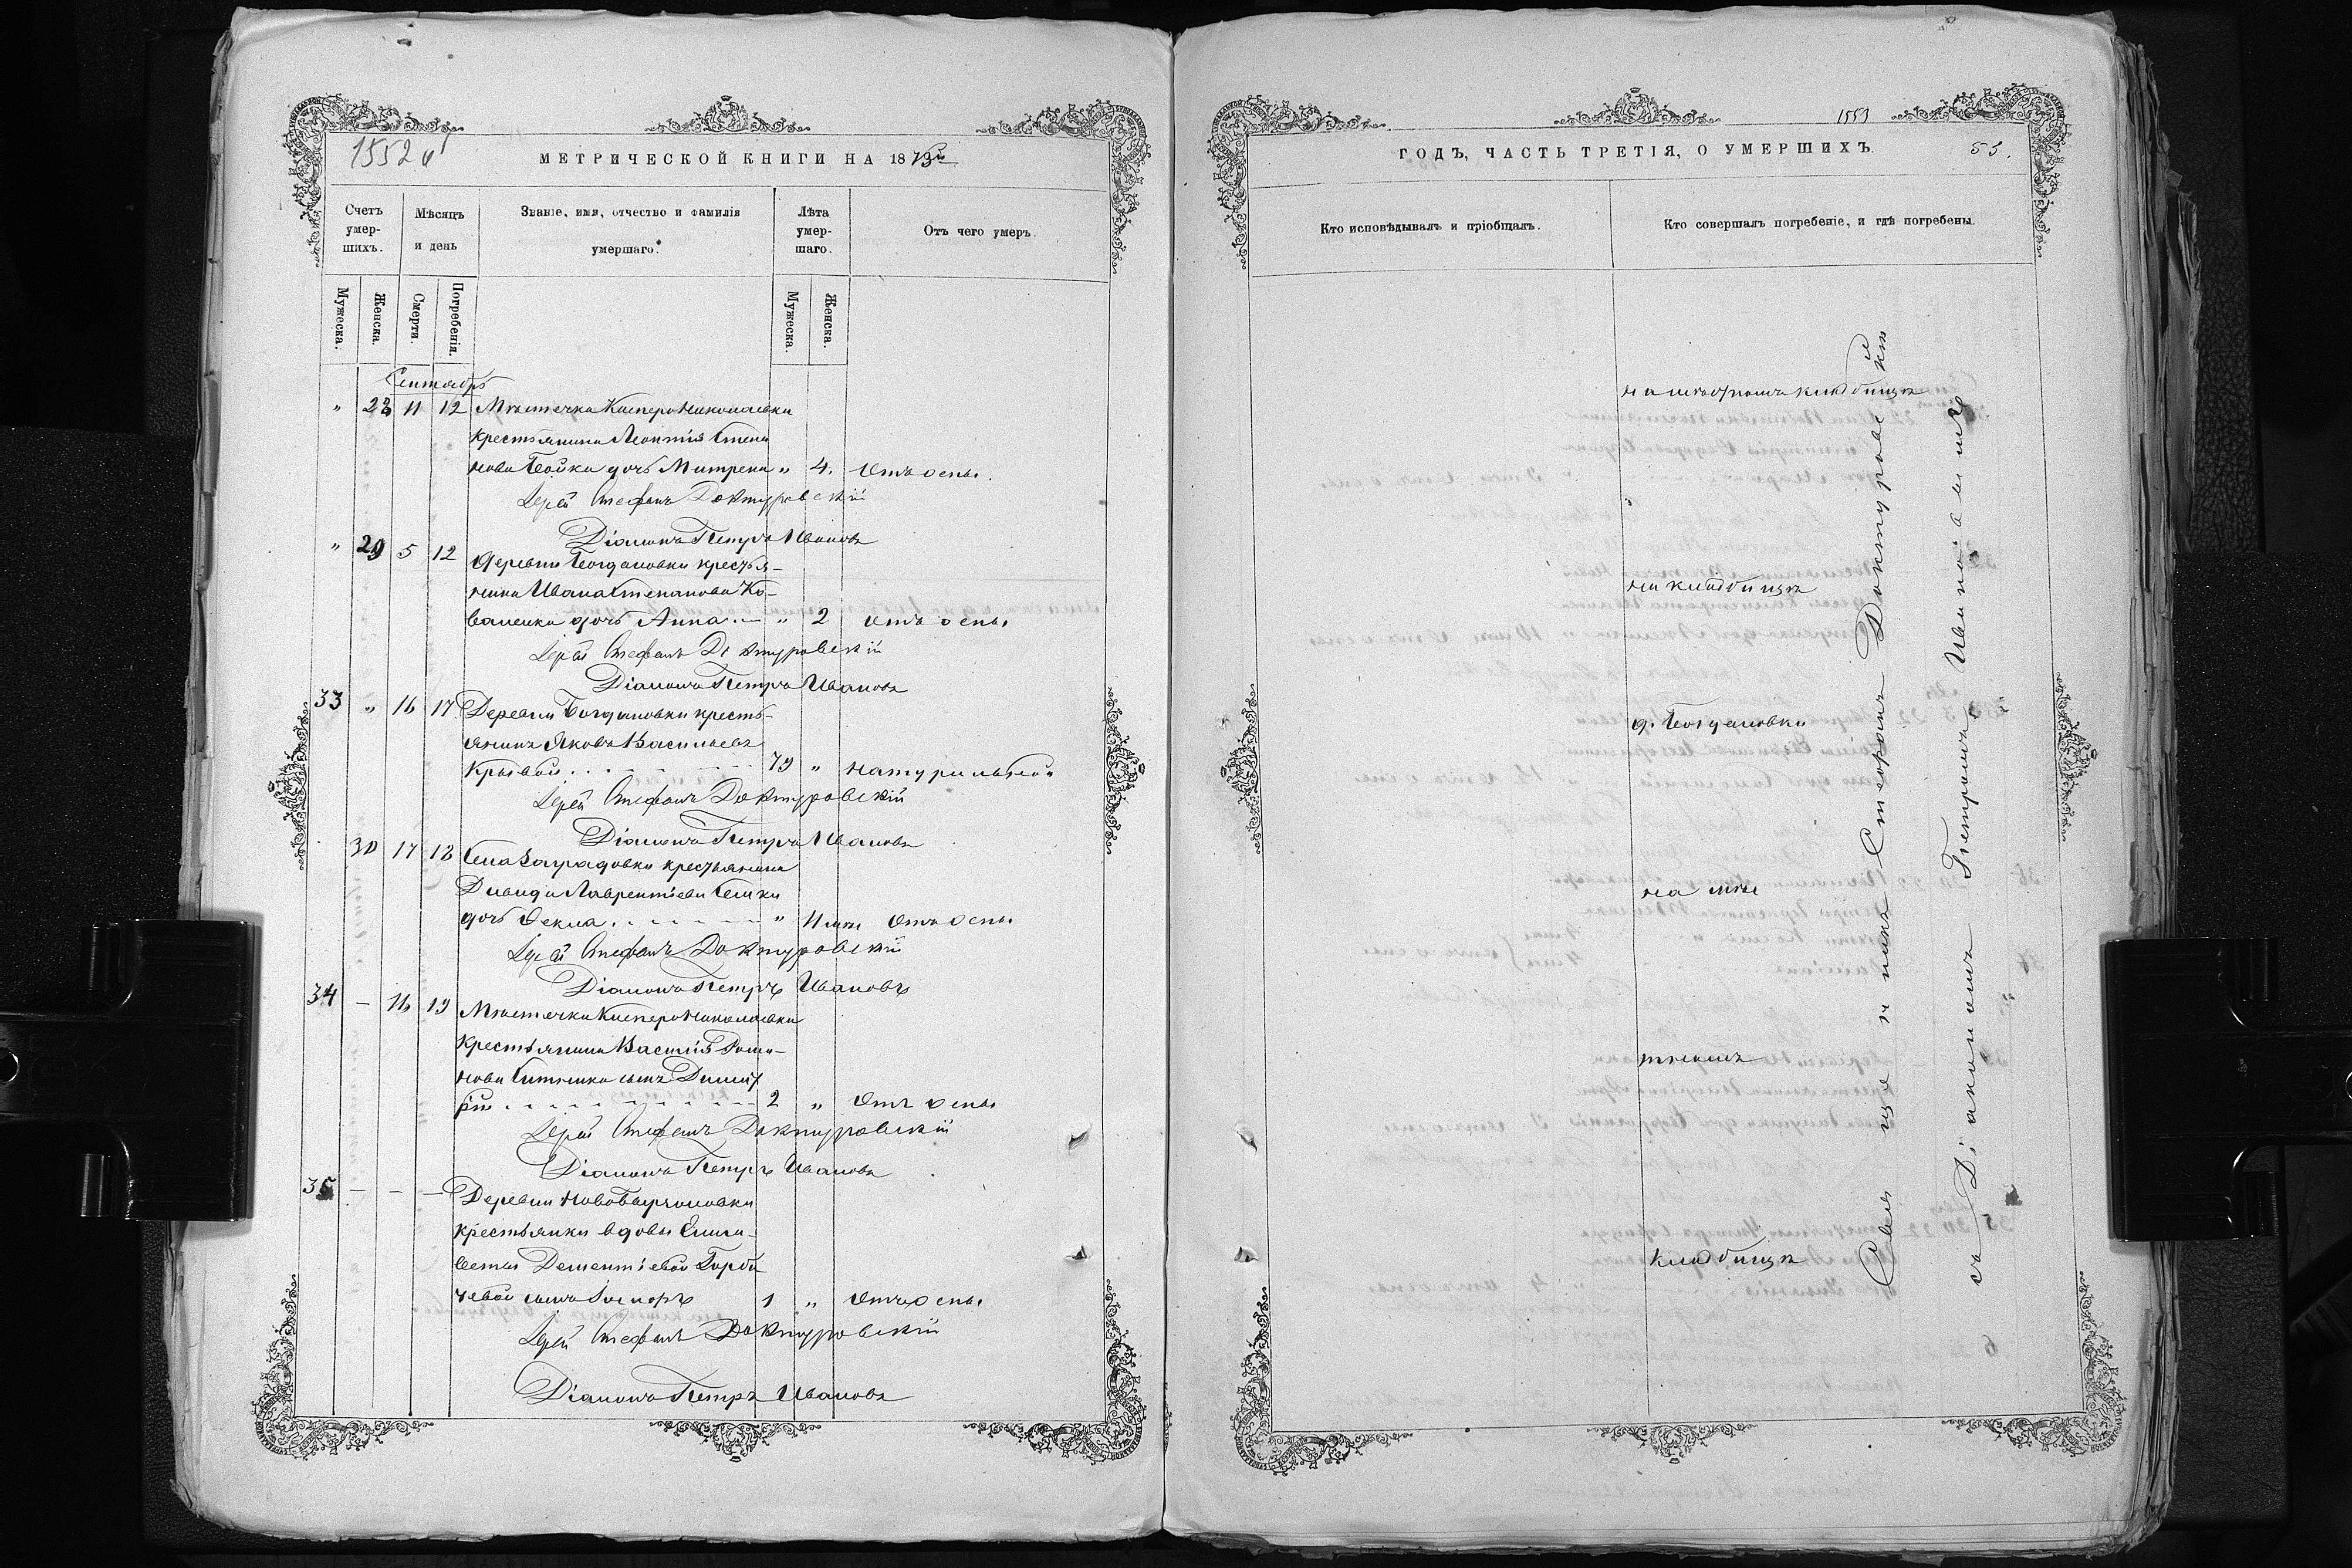 1552 об
МЕТРИЧЕСКОЙ КНИГИ НА 1873й
Счетъ умер-шихъ.
Мѣсяцъ и день
Званіе, имя, отчество и фамилія умершаго.
Лѣта умер-шаго.
Отъ чего умеръ.
Мужеска.
Женска.
Смерти.
Погребенія.
Мужеска.
Женска.
Сентябрь
" 28 11 12 Мѣстечка Касперо Николаевки
крестьянина Леонтія Степа
нова Бойка дочь Матрена " 4. отъ оспы.
Іерей Стефанъ Доктуровскій
Діаконъ Петръ Ивановъ
" 29 5 12
деревни Богдановки крестья-
нина Ивана Степанова Ко-
валенка дочь Анна " 2 отъ оспы
Іерей Стефанъ Доктуровскій
Діаконъ Петръ Ивановъ
33 " 16 17 Деревни Богдановки кресть-
янинъ Яковъ Васильевъ
Кривой 79 " натуральной
Іерей Стефанъ Доктуровскій
Діаконъ Петръ Ивановъ
30 17 18 Села Заградовки крестьянина
Давида Лаврентіева
дочь Ѳекла " 11 отъ оспы
Іерей Стефанъ Доктуровскій
Діаконъ Петръ Ивановъ
34 — 16 19 Мѣстечка Касперо Николаевки
крестьянина Василія Рома-
нова сынъ Димит
рій 2 " отъ оспы
Іерей Стефанъ Доктуровскій
Діаконъ Петръ Ивановъ
35 — — — Деревни
крестьянки вдовы Елиса-
веты Дементіевой Горба
чевой сынъ 1 " отъ оспы
Іерей Стефанъ Доктуровскій
Діаконъ Петръ Ивановъ
1553
ГОДЪ, ЧАСТЬ ТРЕТІЯ, О УМЕРШИХЪ.
53.
Кто исповѣдывалъ и пріобщалъ.
Кто совершалъ погребеніе, и гдѣ погребены.
на кладбищѣ
"
на кладбищѣ
д. Богдановки
на мѣс
тномъ
кладбищѣ
Священникъ Стефанъ Доктуровскій
съ Діакономъ Петромъ Ивановымъ